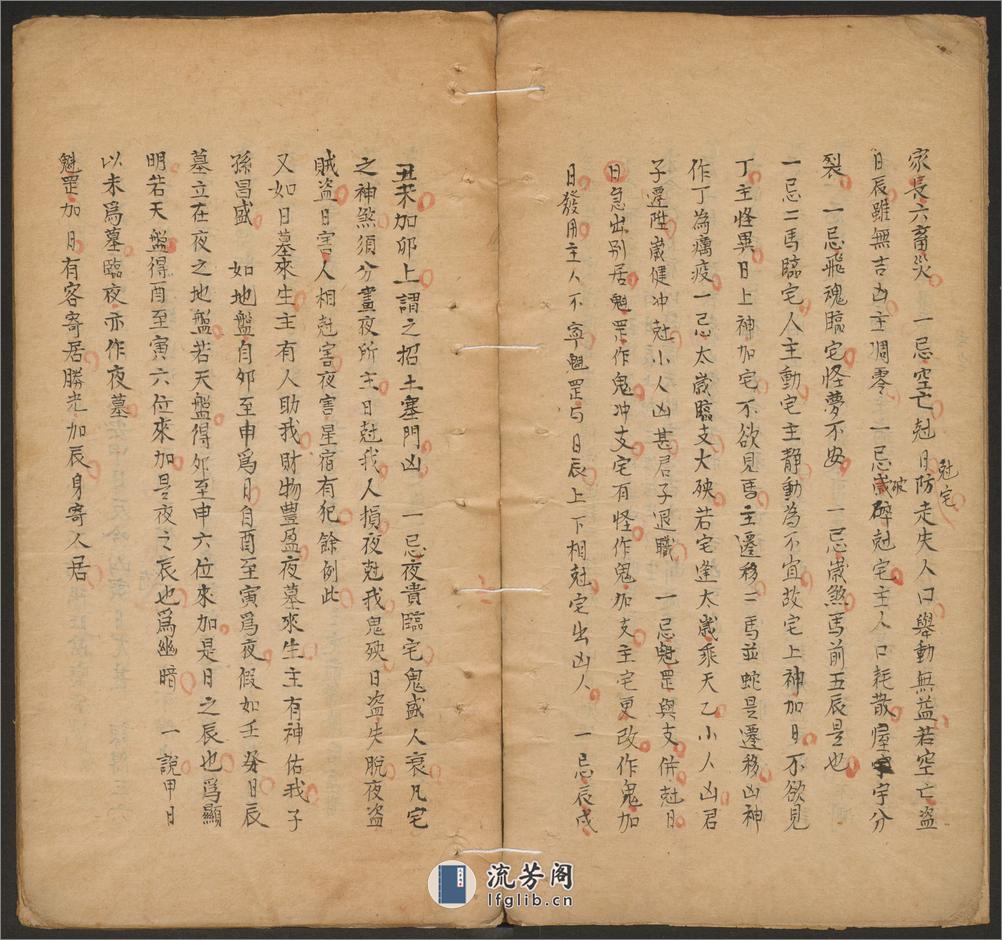 家長六畜災　一忌空亡尅日防走失人口舉動無益若空亡盗
尅宅
日辰雖無吉凶主凋零　一忌歲碎尅宅主人口耗散屋宇分
破
裂　一忌飛魂臨宅怪夢不安　一忌歲煞馬前五辰是也
一忌二馬臨宅人主動宅主靜動為不宜故宅上神加日不欲見
丁主怪異日上神加宅不欲見馬主遷移二馬並蛇是遷移凶神
作丁為癘疫一忌太歲臨支大殃若宅逢太歲乘天乙小人凶君
子遷陞歲健冲尅小人凶甚君子退職　一忌魁罡與支併尅日
日急出别居魁罡作鬼冲支宅有怪作鬼加支主宅更改作鬼加
日發用主人不寧魁罡与日辰上下相尅宅出凶人　一忌辰戌
丑未加卯上謂之招土塞門凶　一忌夜貴臨宅鬼盛人衰凡宅
之神煞須分晝夜所主日尅我人損夜尅我鬼殃日盗失脫夜盗
賊盗日害人相尅害夜害星宿有犯餘例此
又如日墓來生主有人助我財物豐盈夜墓來生主有神佑我子
孫昌盛　如地盤自卯至申爲日自酉至寅爲夜假如壬癸日辰
墓立在夜之地盤若天盤得卯至申六位來加是日之辰也爲顯
明若天盤得酉至寅六位來加是夜之辰也爲幽暗　一說甲日
以未爲墓臨夜亦作夜墓
魁罡加日有客寄居勝光加辰身寄人居
流芳阁
lfglib.cn